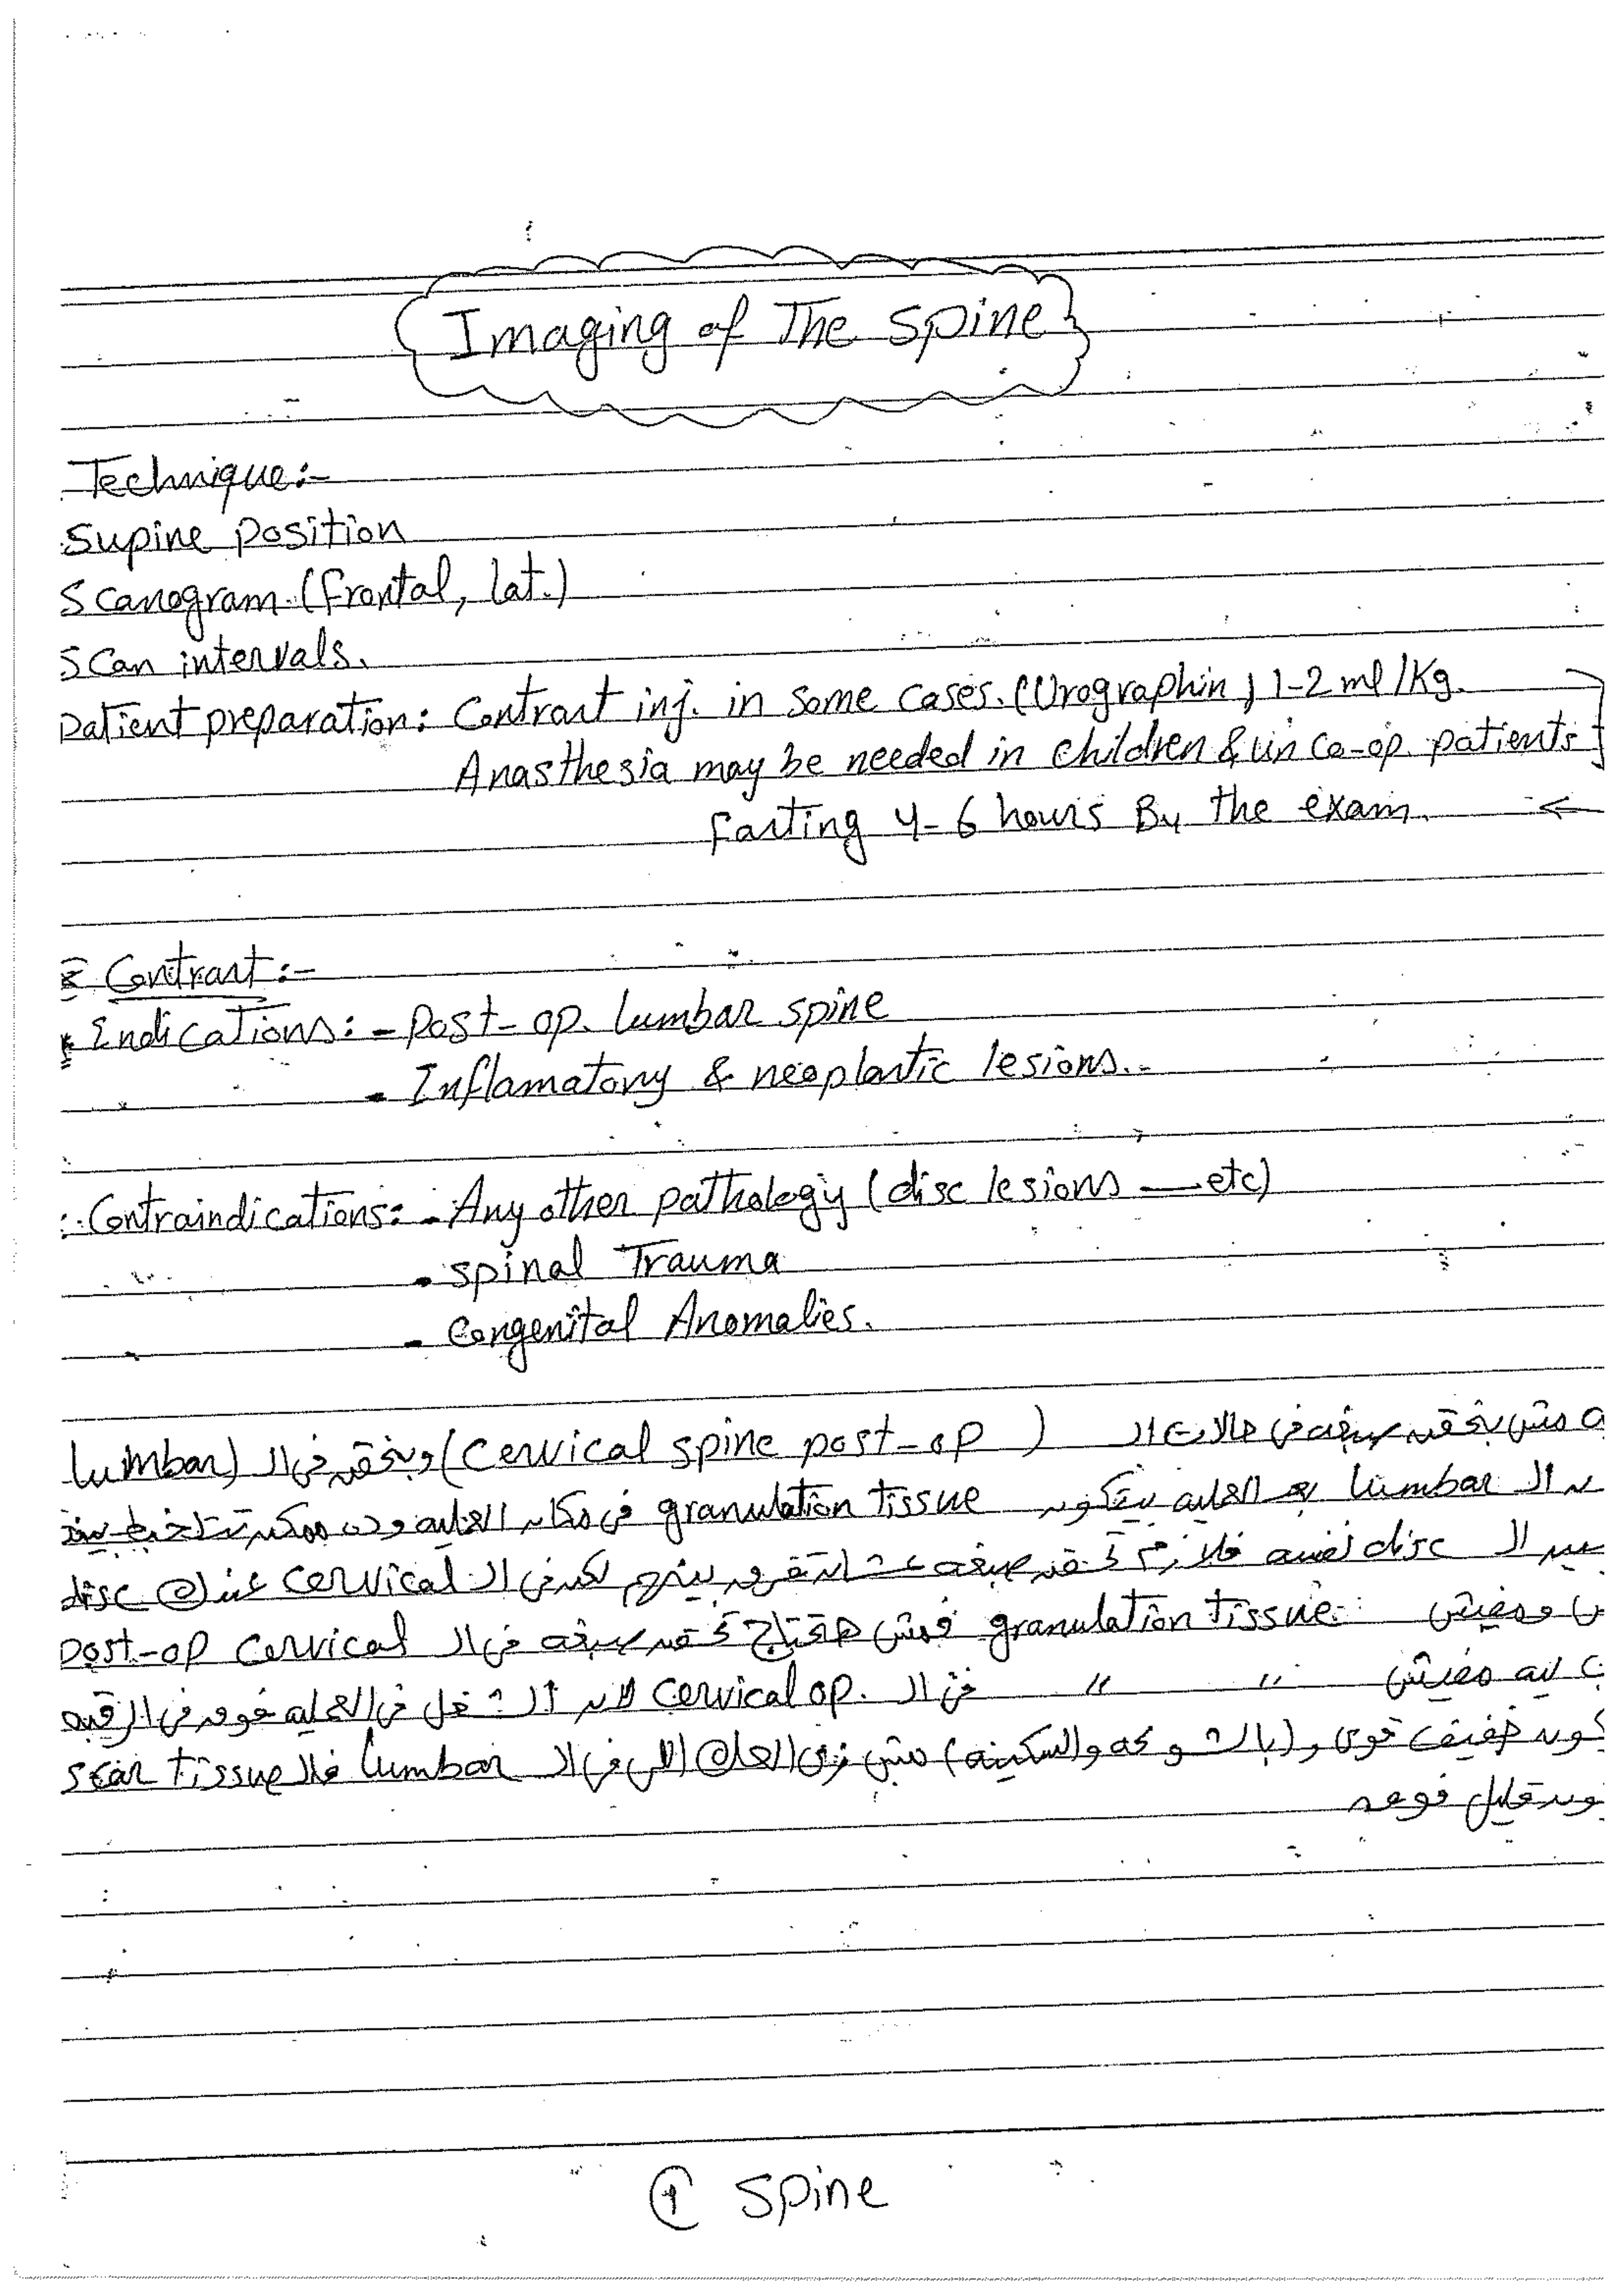 Imaging of The Spine
Technique:-
Supine position
Scanogram (frontal, lat.)
Scan intervals.
Patient preparation: Contrast inj. in some cases. (Urographin) 1-2 ml/Kg.
Anasthesia may be needed in children & un co-op. patients
Fasting 4-6 hours By the exam.
Contrast:-
Indications: - Post-op. lumbar spine
- Inflamatory & neoplastic lesions.
Contraindications: - Any other pathology (disc lesions — etc)
- Spinal Trauma
- Congenital Anomalies.
مش بنحقن صبغه فى حالات الـ (Cervical spine post-op) وبنحقن فى الـ (lumbar
الـ lumbar بعد العمليه بيتكون granulation tissue فى مكان العمليه ودى ممكن تتلخبط بينه
الـ disc نفسه فلازم نحقن صبغه عشان تفرق بينهم لكن فى الـ cervical عندك disc
ومفيش granulation tissue فمش هتحتاج تحقن صبغه فى الـ post-op cervical
ليه مفيش " " فى الـ cervical op. لان الشغل فى العمليه فوق فى الرقبه
خفيف قوى و (بالشوكه والسكينه) مش زى العك اللى فى الـ lumbar فالـ scar tissue
قليل فوق
① Spine